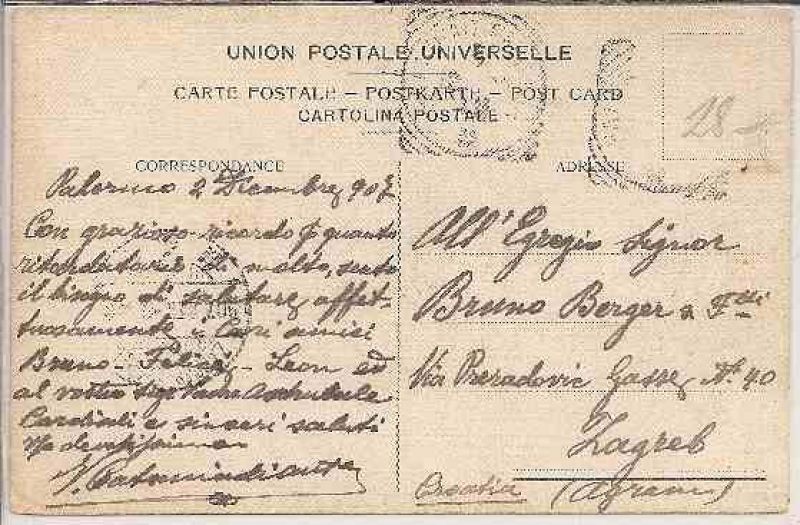 UNION POSTALE UNIVERSELLE
CARTE POSTALE — POSTKARTE — POST CARD
CARTOLINA POSTALE
CORRESPONDANCE
Palermo 2 Dicembre 907
Con grazioso ricordo quanto
di molto, sento
il bisogno di salutare affet-
tuosamente i cari amici
Bruno - Felice - Leon ed
al vostro
Cordiali e sinceri saluti
ADRESSE
28
All' Egregio Signor
Bruno Berger & F.lli
Via Preradovic Gasse, N.º 40
Zagreb
Croatia (Agram)